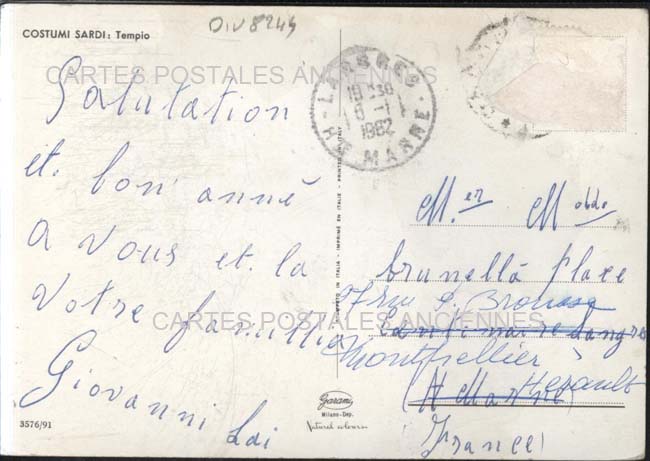 COSTUMI SARDI: Tempio
CARTES POSTALES ANCIENNES
Salutation
et. bon anné
a vous et. la
votre famillier
Giovanni Lai
3576/91
LANGRES
19 H30
6 -1
1962
HTE MARNE
STAMPATO IN ITALIA - IMPRIMÉ EN ITALIE - PRINTED IN ITALY
Garami
Milano-Dep.
Natural colours
M.er Mobde
brunella Place
7 rue
Langres
Montpellier
Hérault
(H Marne)
(France)
CARTES POSTALES ANCIENNES